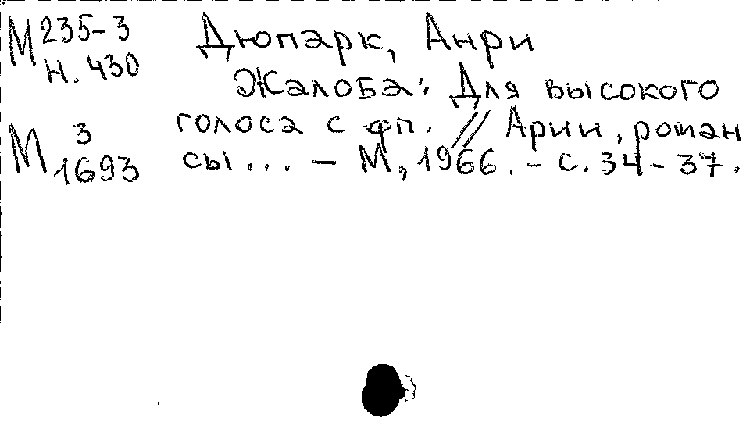 М 235-3 Дюпарк, Анри
н. 430
Жалоба: Для высокого
М 3 голоса с фп. // Арии, роман
1693 сы... – М., 1966. – С. 34-37.